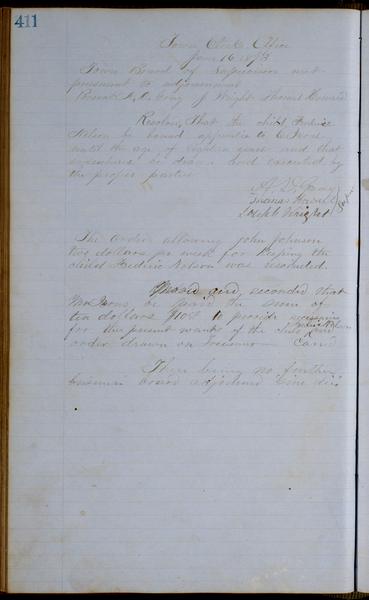 411
Town Clerks Office
Jany 16 1873
Town Board of Supervisors met
pursuant to adjournment
Present A. D. Gray J. Wright Thomas Howard
Resolved, That the child Fredric
Nelson be bound apprentice to
until the age of eighteen years and that
indentures be drawn and executed by
the proper parties
A. D. Gray
Thomas Howard
Joseph Wright
The order allowing John Johnson
two dollars per week for keeping the
child Fredric Nelson was rescinded.
Moved and seconded that
Mr be paid the sum of
ten dollars $10.00 to provide necessaries
for the present wants of the child Fredric Nelson
order drawn on Treasurer Carrid
There being no further
business board adjourned Sine die